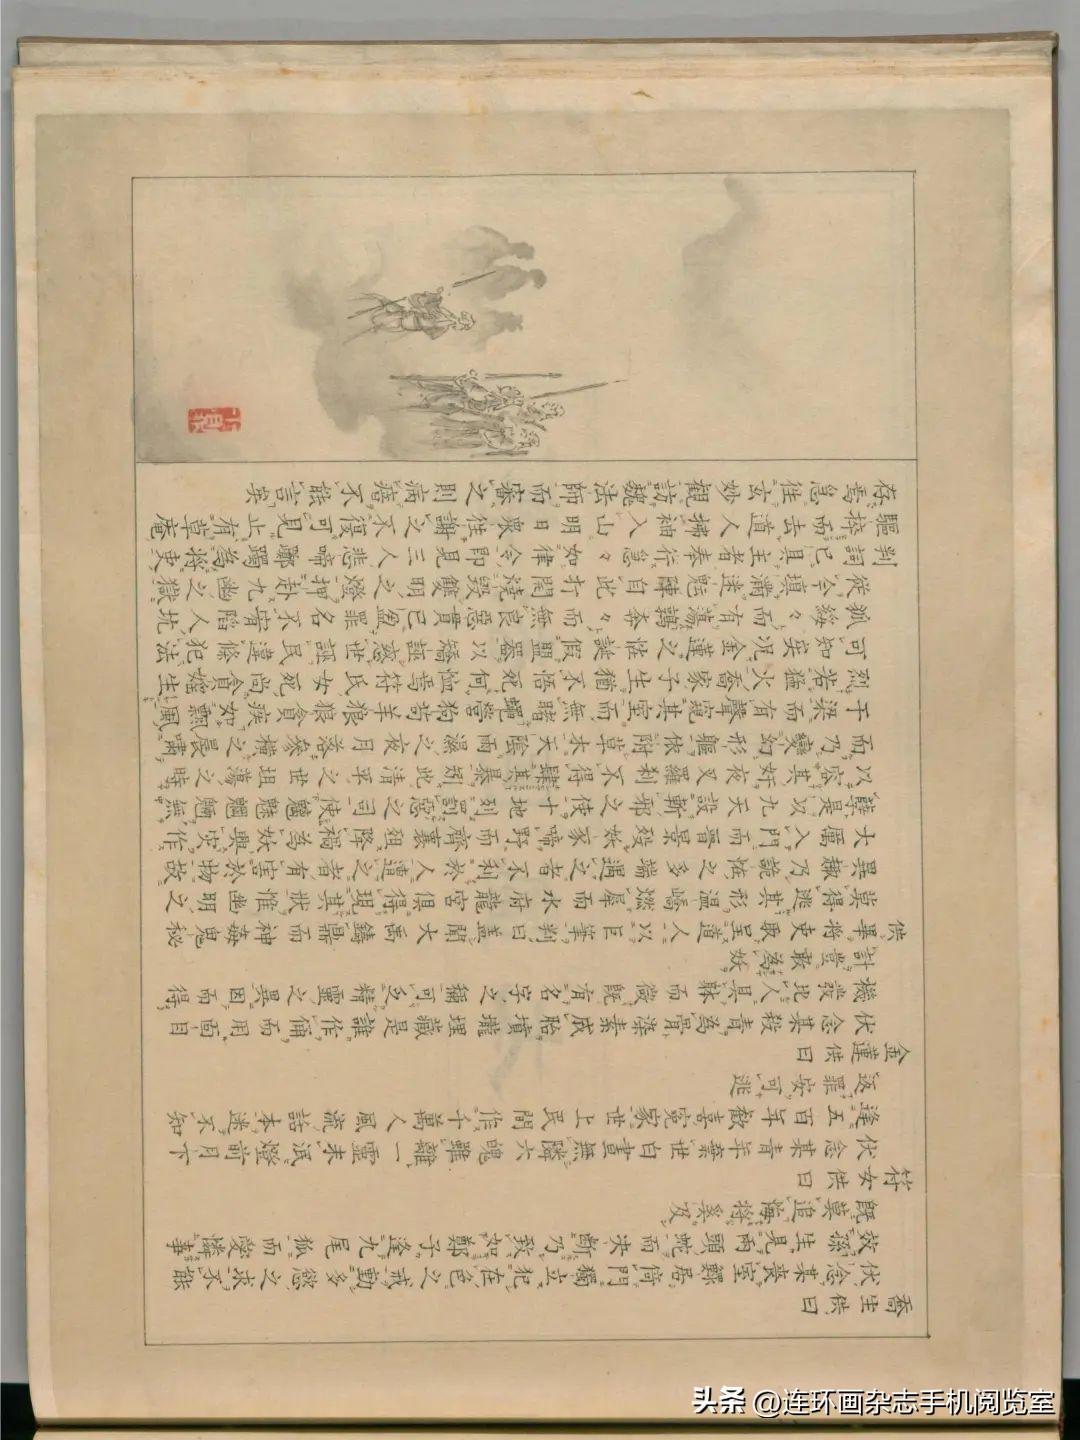 喬生供曰
伏念某喪室鰥居倚門獨立犯在色之戒動多慾之求不能
效孫生見兩頭蛇而決斷乃致如鄭子逢九尾狐而愛憐事
既莫追悔將奚及
符女供曰
伏念某青年棄世白晝無隣六魄雖離一靈未泯燈前月下
逢五百年歡喜寃家世上民間作千萬人風流話本迷不知
返罪安可逃
金蓮供曰
伏念某殺青為骨染素成胎墳壠埋藏是誰作俑而用面目
機發比人具體而微既有名字之稱可乏精靈之異因而得
計豈敢為妖
供畢將吏取呈道人以巨筆判曰蓋聞大禹鑄鼎而神姦鬼秘
莫得逃其形溫嶠燃犀而水府龍宮俱得現其狀惟幽明之
異趣乃詭怪之多端遇之者不利於人遭之者有害於物故
大厲入門而晉景歿妖豕啼野而齊襄殂降禍為妖興灾作
孽是以九天設斬邪之使十地列罰惡之司使魑魅魍魎無
以容其奸夜叉羅刹不得肆其暴矧此清平之世坦蕩之時
而乃變幻形軀依附草木天陰雨濕之夜月落參橫之晨嘯
于梁而有聲窺其室而無睹蠅營狗苟羊狠狼貪疾如飄風
烈若猛火喬家子生猶不悟死何恤焉符氏女死尚貪婬生
可知矣況金蓮之怪誕假盟器以矯誣惑世誣民違條犯法
狐綏々而有蕩鶉奔々而無良惡貫已盈罪名不宥陷人坑
從今填滿迷魂陣自此打開燒毀雙明之燈押赴九幽之獄
判詞已具主者奉行急々如律令即見三人悲啼躑躅為將吏
驅捽而去道人拂袖入山明日衆往謝之不復可見止有草庵
存焉急往玄妙觀訪魏法師而審之則病瘖不能言矣
头条 @连环画杂志手机阅览室